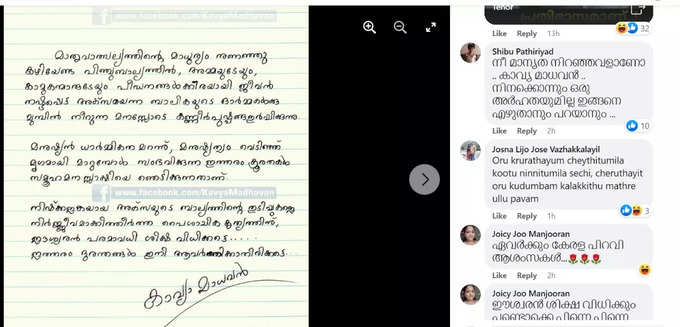 www.facebook.com/KavyaMadhavan
മാതൃവാത്സല്യത്തിന്റെ, മാധുര്യം നുണഞ്ഞു
കഴിയേണ്ട പിഞ്ചുബാല്യത്തിൽ, അമ്മയുടെയും,
കാമുകന്മാരുടേയും പീഡനങ്ങൾക്കിരയായി ജീവൻ
നഷ്ടപ്പെട്ട അക്സയെന്ന ബാലികയുടെ ഓർമ്മകൾക്കു
മുമ്പിൽ നീറുന്ന മനസ്സോടെ കണ്ണീർപുഷ്പങ്ങളർപ്പിക്കുന്നു.
മനുഷ്യൻ ധാർമ്മികത മറന്ന്, മനുഷ്യത്വം വെടിഞ്ഞ്
മൃഗമായി മാറുമ്പോൾ സംഭവിക്കുന്ന ഇത്തരം ക്രൂരതകൾ
സമൂഹമനഃസ്സാക്ഷിയെ ഞെട്ടിക്കുന്നതാണ്.
www.facebook.com/KavyaMadhavan
നിഷ്കളങ്കയായ അക്സയുടെ ബാല്യത്തിന്റെ തുടിപ്പുകളെ
നിർജ്ജീവമാക്കിത്തീർത്ത പൈശാചിക കൃത്യത്തിന്,
ഈശ്വരൻ പരമാവധി ശിക്ഷ വിധിക്കട്ടെ.....
ഇത്തരം ദുരന്തങ്ങൾ ഇനി ആവർത്തിക്കാതിരിക്കട്ടെ...
കാവ്യാ മാധവൻ
Tenor
32
Like Reply 13h
Shibu Pathiriyad
നീ മാന്യത നിറഞ്ഞവളാണോ
.. കാവ്യ മാധവൻ .
നിനക്കൊന്നും ഒരു
അർഹതയുമില്ല ഇങ്ങനെ
എഴുതാനും പറയാനും ..
10
Like Reply 2h
Josna Lijo Jose Vazhakkalayil
Oru krurathayum cheythitumila
kootu ninnitumila sechi, cheruthayit
oru kudumbam kalakkithu mathre
ullu pavam
3
Like Reply 1h
Joicy Joo Manjooran
ഏവർക്കും കേരള പിറവി
ആശംസകൾ...🌹🌹🌹
Like Reply 2h
Joicy Joo Manjooran
ഈശ്വരൻ ശിക്ഷ വിധിക്കും
പണ്ടൊക്കെ പിന്നെ പിന്നെ